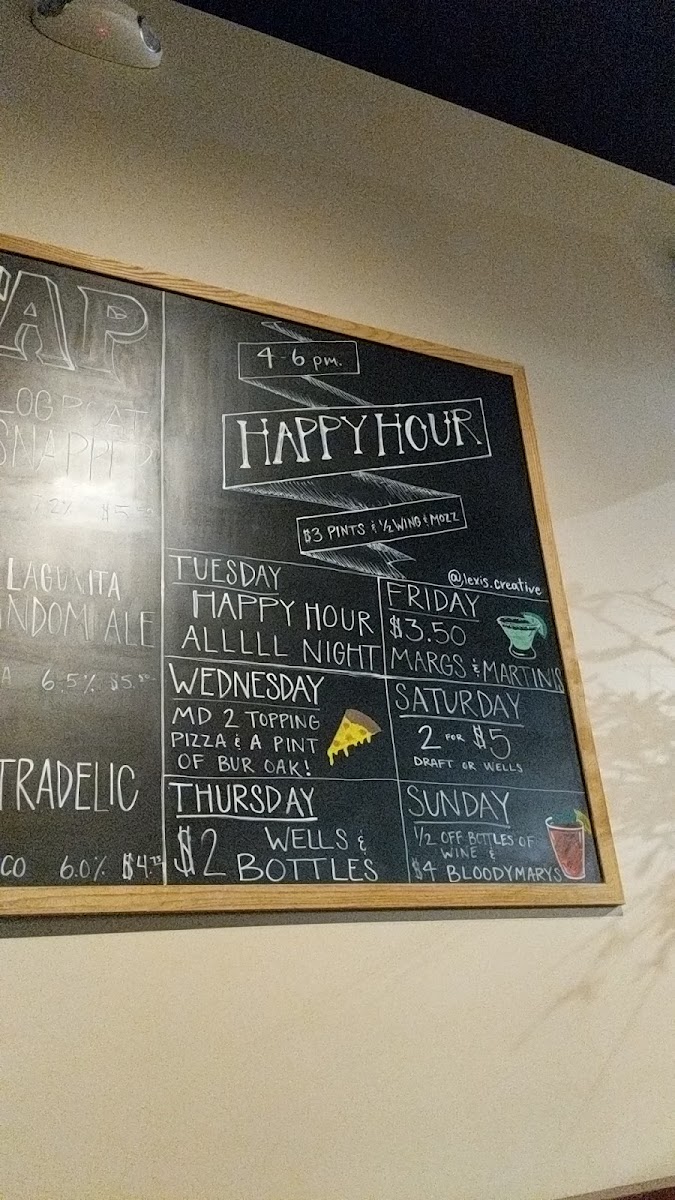 TAP
LOGBOAT
SNAPPER
7.2% $5.
LAGUNITA
NDOM ALE
A 6.5% $5.50
TRADELIC
CO 6.0% $4.75
4-6 pm.
HAPPY HOUR
$3 PINTS & 1/2 WING & MOZZ
@lexis.creative
TUESDAY
HAPPY HOUR
ALLLLL NIGHT
WEDNESDAY
MD 2 TOPPING
PIZZA & A PINT
OF BUR OAK!
THURSDAY
$2 WELLS &
BOTTLES
FRIDAY
$3.50
MARGS & MARTINIS
SATURDAY
2 FOR $5
DRAFT OR WELLS
SUNDAY
1/2 OFF BOTTLES OF
WINE &
$4 BLOODYMARYS